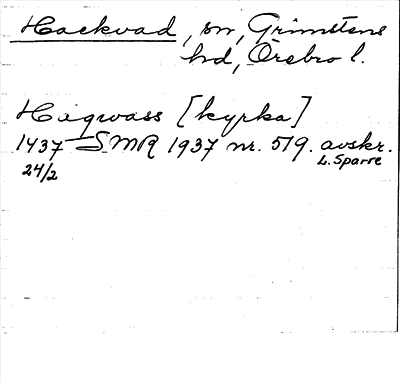 Hackvad, sn, Grimstens
hd, Örebro l.
Hagwass [kyrka]
1437 SMR 1937 nr. 519. avskr.
24/2 L. Sparre